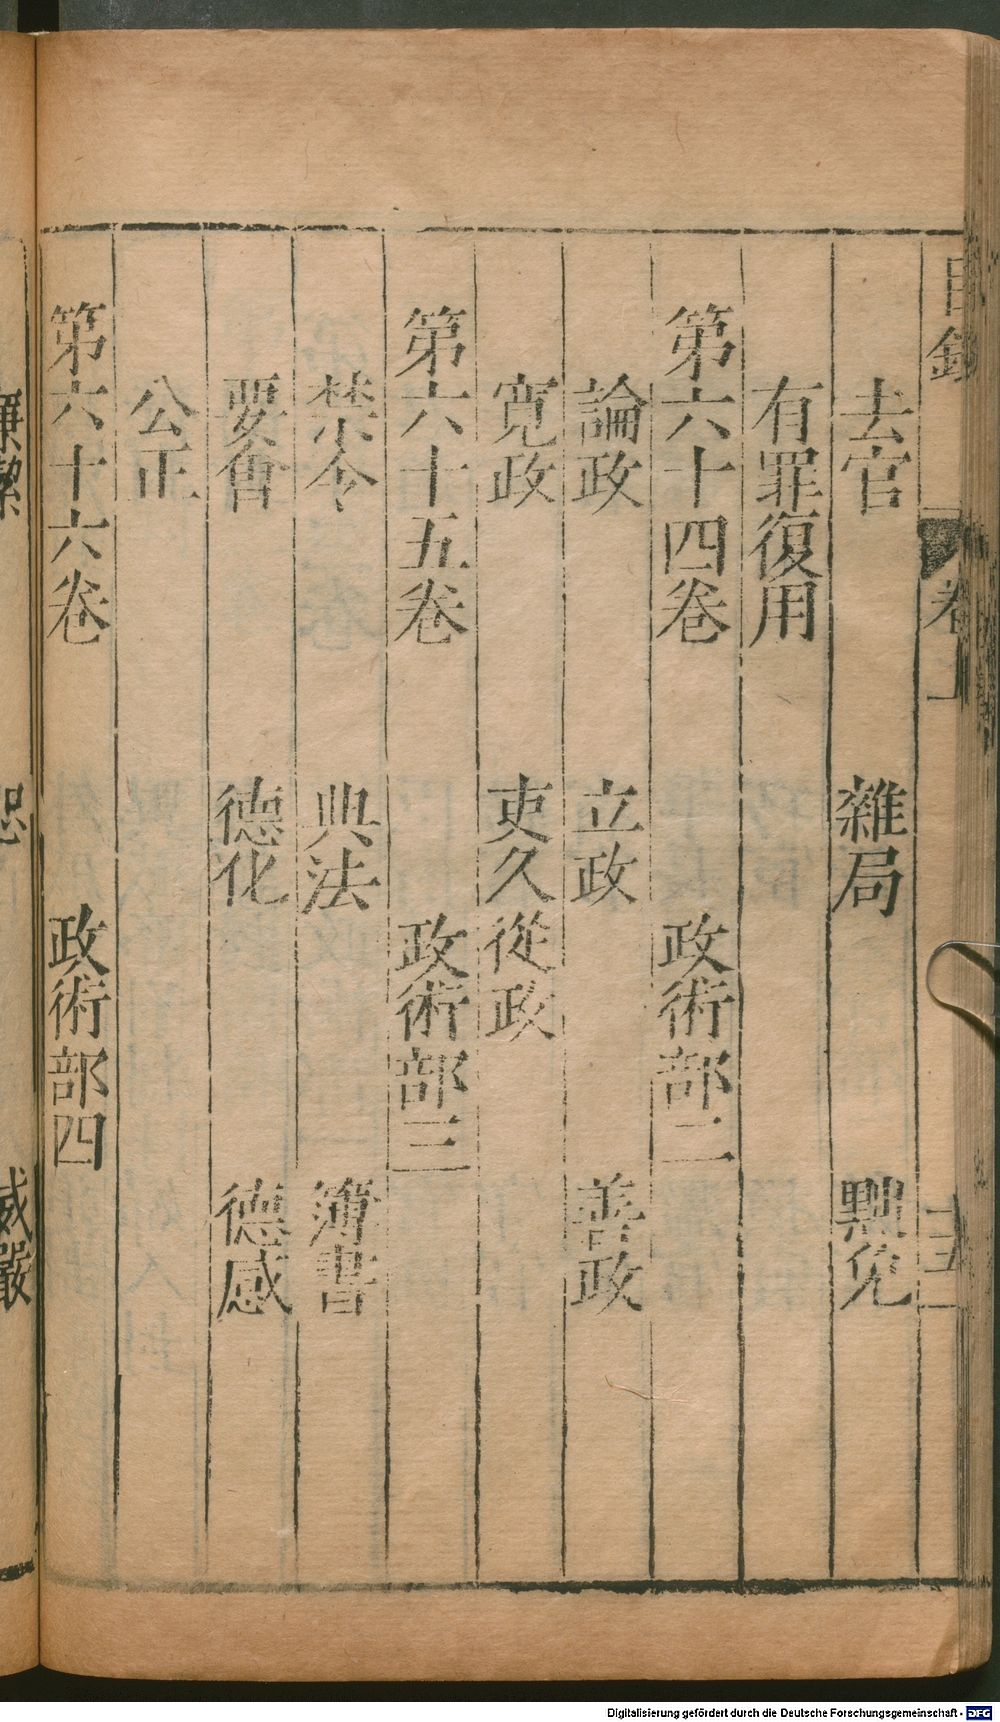 目錄 卷上 五一
去官 雜局 黜免
有罪復用
第六十四卷 政術部二
論政 立政 善政
寬政 吏久從政
第六十五卷 政術部三
禁令 典法 簿書
要會 德化 德感
公正
第六十六卷 政術部四
廉潔 恕 威嚴
Digitalisierung gefördert durch die Deutsche Forschungsgemeinschaft - DFG